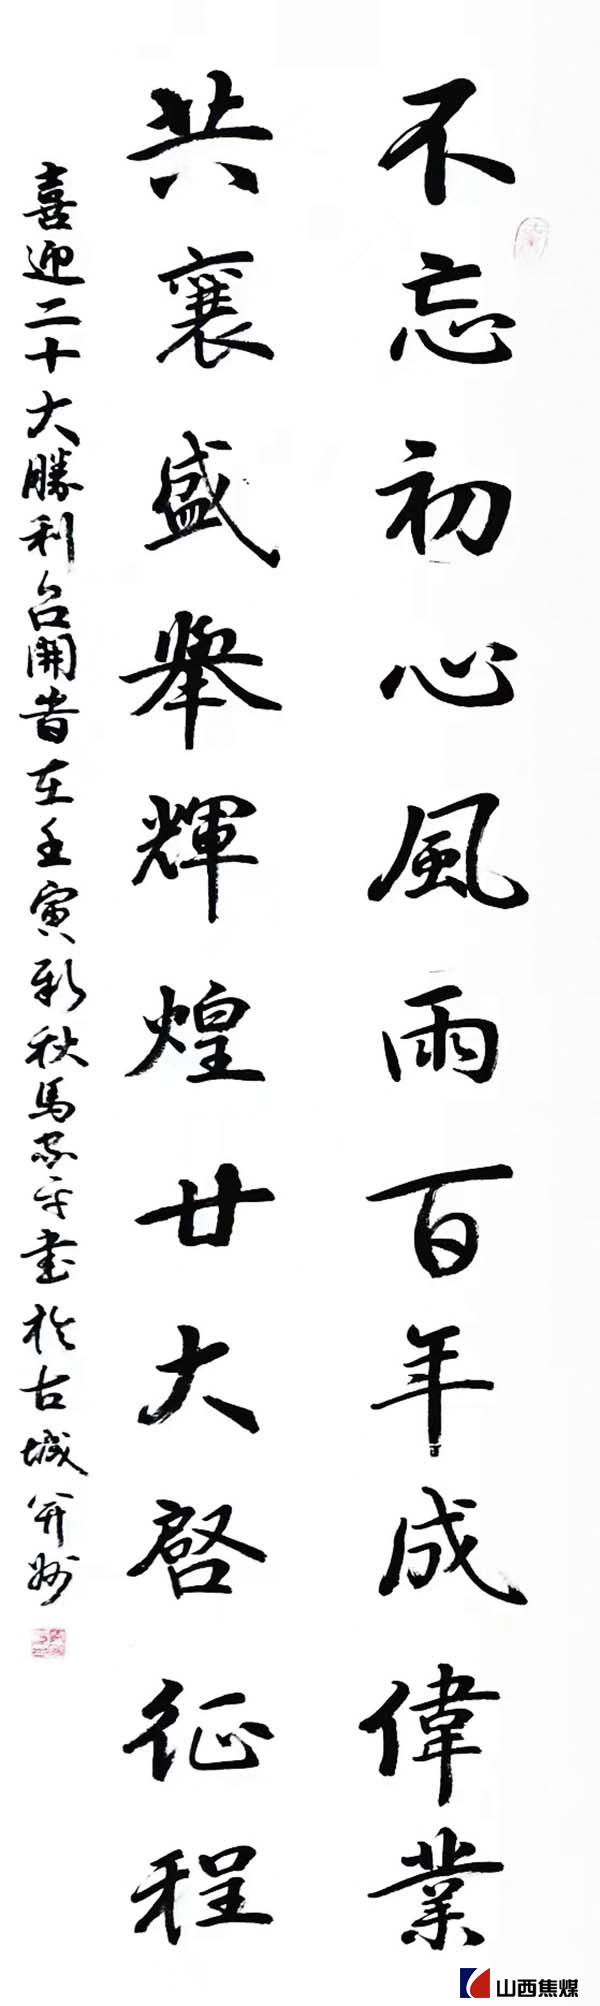 不忘初心風雨百年成偉業
共襄盛舉輝煌廿大啓征程
喜迎二十大勝利召開 嵗在壬寅新秋馬家平書於古城并州
山西焦煤